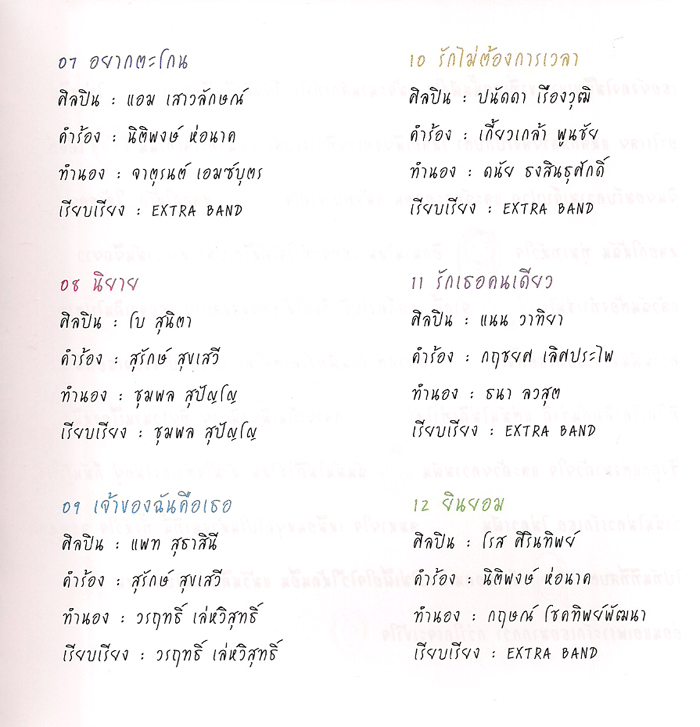 07 อยากตะโกน
ศิลปิน : แอม เสาวลักษณ์
คำร้อง : นิติพงษ์ ห่อนาค
ทำนอง : จาตุรนต์ เอมซ์บุตร
เรียบเรียง : EXTRA BAND
08 นิยาย
ศิลปิน : โบ สุนิตา
คำร้อง : สุรักษ์ สุขเสวี
ทำนอง : ชุมพล สุปัญโญ
เรียบเรียง : ชุมพล สุปัญโญ
09 เจ้าของฉันคือเธอ
ศิลปิน : แพท สุธาสินี
คำร้อง : สุรักษ์ สุขเสวี
ทำนอง : วรฤทธิ์ เล่หวิสุทธิ์
เรียบเรียง : วรฤทธิ์ เล่หวิสุทธิ์
10 รักไม่ต้องการเวลา
ศิลปิน : ปนัดดา เรืองวุฒิ
คำร้อง : เกี้ยวเกล้า พูนชัย
ทำนอง : ดนัย ธงสินธุศักดิ์
เรียบเรียง : EXTRA BAND
11 รักเธอคนเดียว
ศิลปิน : แนน วาทิยา
คำร้อง : กฤชยศ เลิศประไพ
ทำนอง : ธนา ลวสุต
เรียบเรียง : EXTRA BAND
12 ยินยอม
ศิลปิน : โรส ศิรินทิพย์
คำร้อง : นิติพงษ์ ห่อนาค
ทำนอง : กฤษณ์ โชคทิพย์พัฒนา
เรียบเรียง : EXTRA BAND